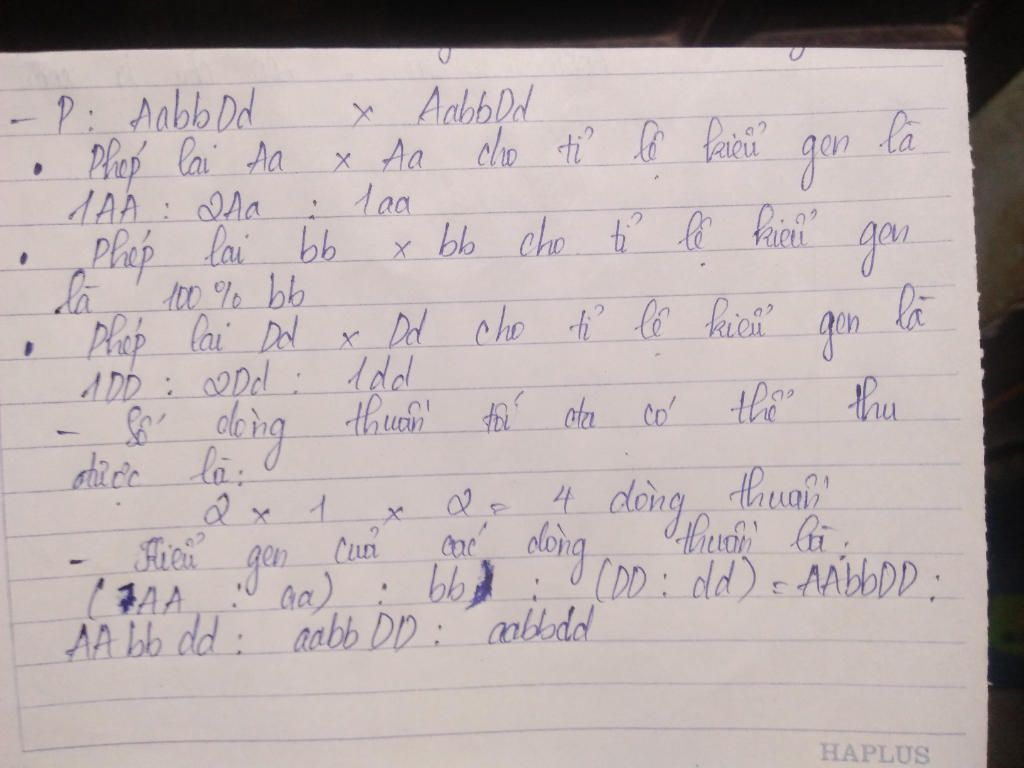 - P: AabbDd x AabbDd
• Phép lai Aa x Aa cho tỉ lệ kiểu gen là
1AA : 2Aa : 1aa
• Phép lai bb x bb cho tỉ lệ kiểu gen
là 100% bb
• Phép lai Dd x Dd cho tỉ lệ kiểu gen là
1DD : 2Dd : 1dd
- Số dòng thuần tối đa có thể thu
được là:
2 x 1 x 2 = 4 dòng thuần
- Kiểu gen của các dòng thuần là:
(AA : aa) : bb : (DD : dd) = AAbbDD :
AAbbdd : aabbDD : aabbdd
HAPLUS